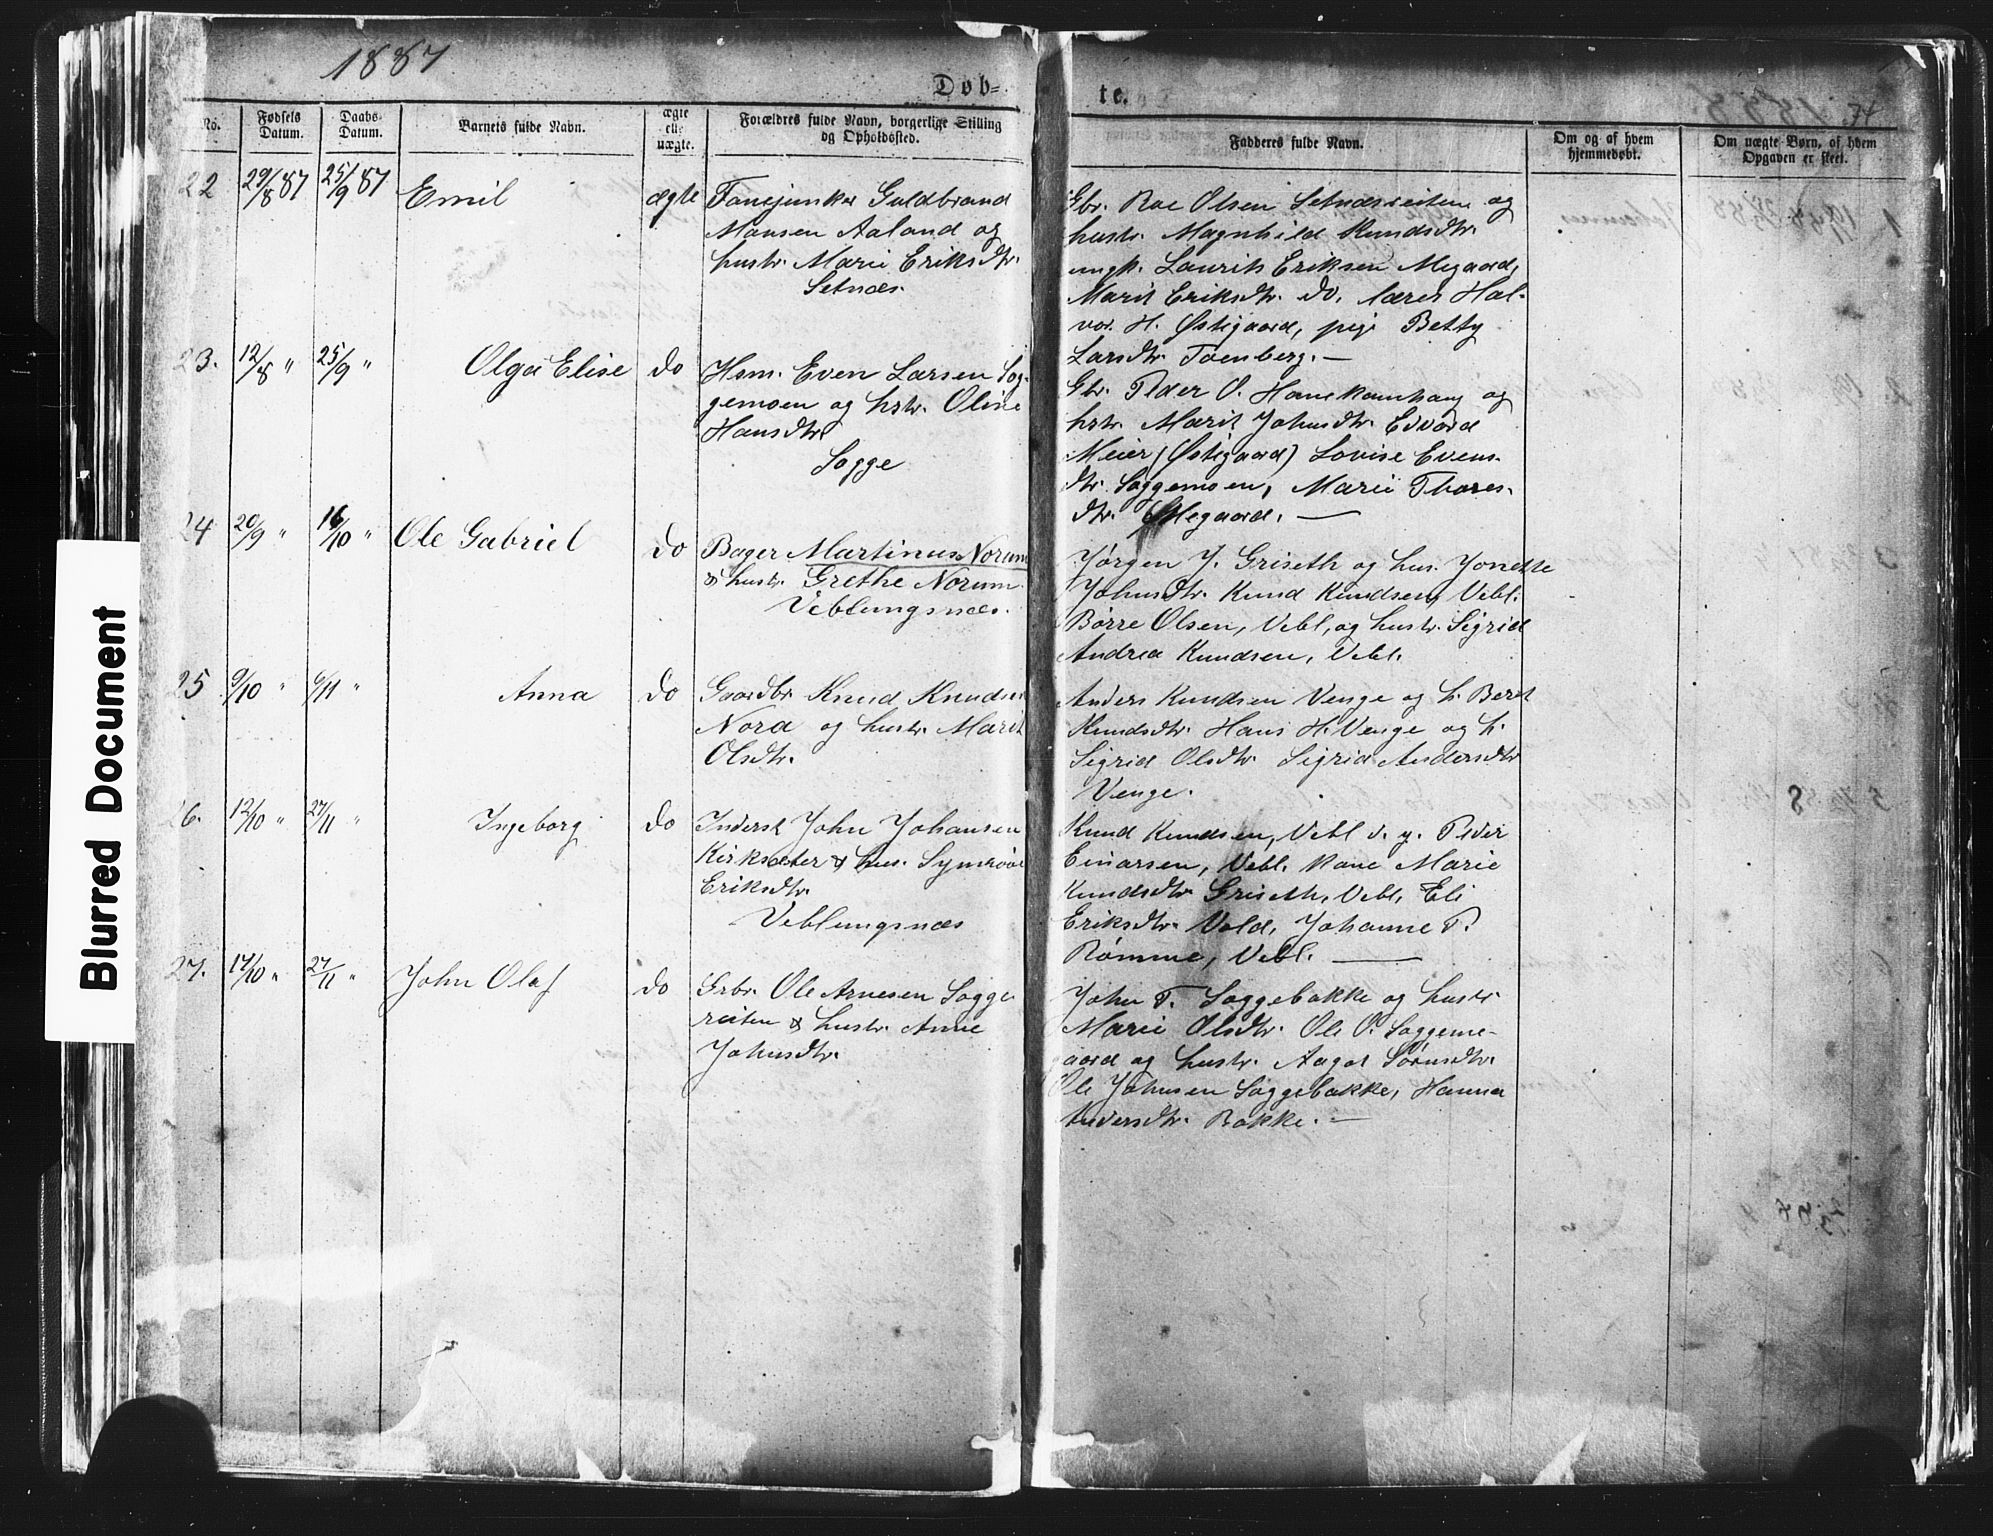 1887
Døb-
te.
74
No.
Fødsels Datum.
Daabs-Datum.
Barnets fulde Navn.
ægte elle uægte.
Forældres fulde Navn, borgerlige Stilling
og Opholdssted.
Fadderes fulde Navn.
Om og af hvem
hjemmedøbt.
Om uægte Børn, af hvem
Opgaven er skeet.
22 29/8 87 25/9 87 Emil ægte Fanejunker Guldbrand
Monsen Aaland og
hustr. Marie Eriksdtr.
Setnæs.
Gbr. Roe Olsen Setnæsreiten og
hustr. Magnhild Knudsdtr.
ungk. Laurits Eriksen Megaard,
Marit Eriksdtr. do, lærer Hal-
vor H. Østigaard, pige Betty
Larsdtr. Toenberg. —
23. 12/8 " 25/9 " Olga Elise do Hsm. Even Larsen Sog-
gemoen og hstr. Oline
Hansdtr.
Sogge
Gbr. Peder O. Hanekamhaug og
hstr. Marit Johnsdtr. Edvard
Meier (Østigaard) Lovise Evens-
dtr. Soggemoen, Marie Thores-
dtr. Megaard. —
24 20/9 " 16/10 " Ole Gabriel do Bager Martinus Norum
& hustr. Grethe Norum
Veblungsnæs.
Jørgen J. Griseth og hus. Jonette
Johnsdtr. Knud Knudsen, Vebl.
Børre Olsen, Vebl, og hustr. Sigrid
Andrea Knudsen, Vebl.
25 9/10 " 6/11 " Anna do Gaardbr. Knud Knudsen
Nora og hustr. Marit
Olsdtr.
Anders Knudsen Venge og h. Beret
Knudsdtr. Hans H. Venge og h.
Sigrid Olsdtr. Sigrid Andersdtr
Venge.
26. 12/10 " 27/11 " Ingeborg do Inderst John Johansen
Kirksæter & hus. Synnøve
Eriksdtr.
Veblungsnæs
Knud Knudsen, Vebl d. y. Peder
Einarsen, Vebl. kone Marie
Knudsdtr Griseth, Vebl, Eli
Eriksdtr. Vold, Johanne P.
Rømme, Vebl. —
27. 17/10 " 27/11 " John Olaf do Grbr. Ole Arnesen Sogge-
reiten & hustr. Anne
Johnsdtr.
John T. Soggebakke og hustr
Marie Olsdtr. Ole O. Soggeme-
gaard og hustr. Aagot Sørensdtr.
Ole Johnsen Soggebakke, Hanna
Andersdtr. Bakke. —
Blurred Document